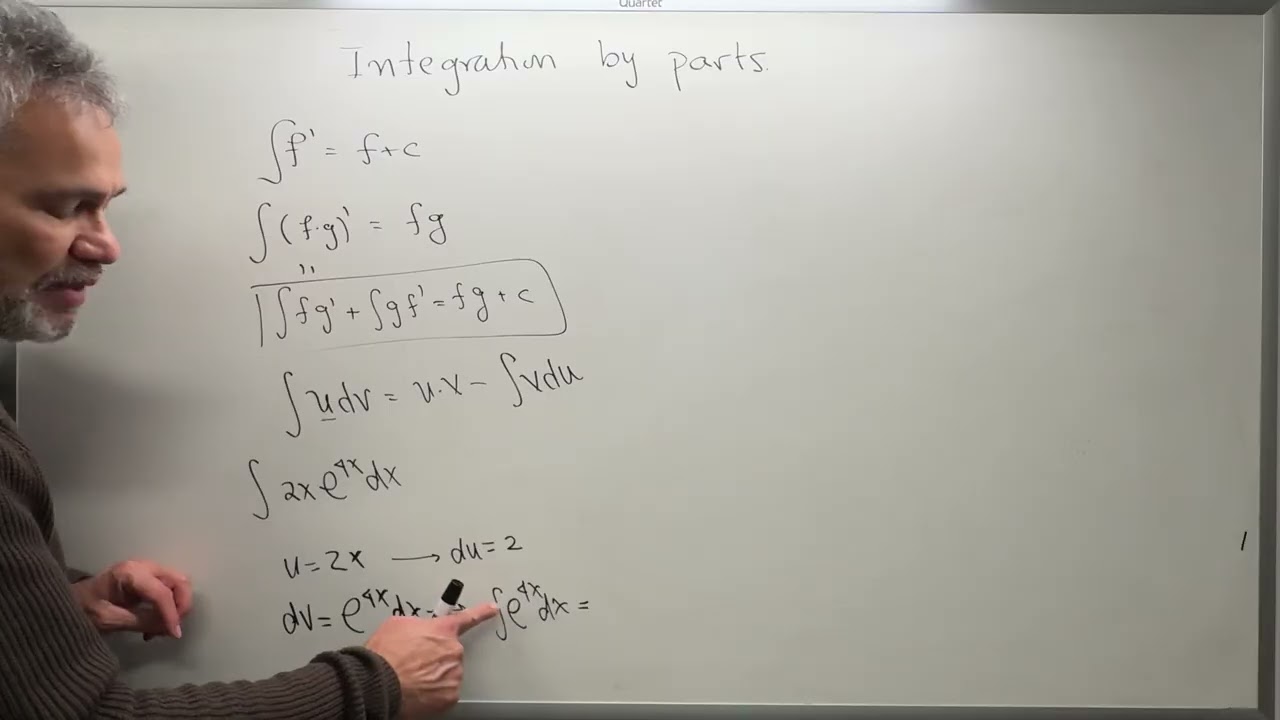 Quartet
Integration by parts.
∫f' = f+c
∫(f·g)' = fg
∫fg' + ∫gf' = fg + c
∫udv = u.v - ∫vdu
∫2xe^{4x}dx
u=2x → du=2
dv=e^{4x}dx → ∫e^{4x}dx =